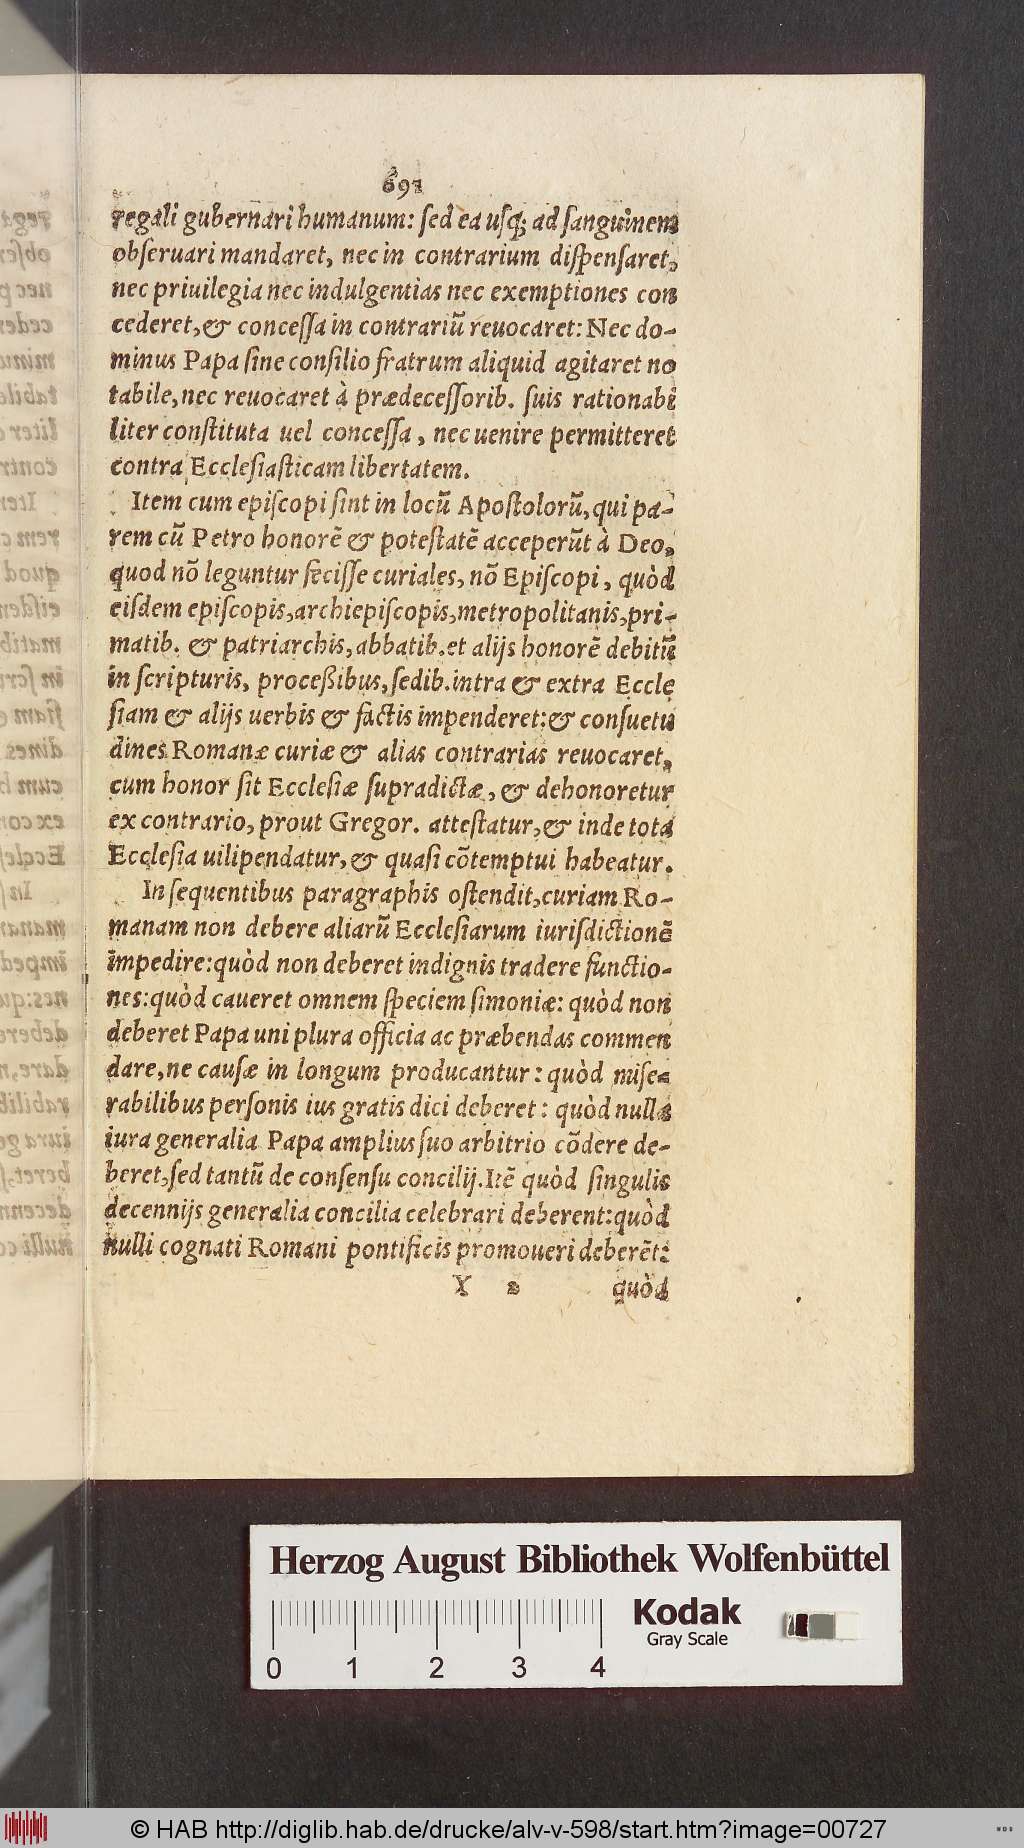 691
regali gubernari humanum: sed ea usq; ad sanguinem
obseruari mandaret, nec in contrarium dispensaret,
nec priuilegia nec indulgentias nec exemptiones con
cederet, & concessa in contrariũ reuocaret: Nec do-
minus Papa sine consilio fratrum aliquid agitaret no
tabile, nec reuocaret à prædecessorib. suis rationabi
liter constituta uel concessa, nec uenire permitteret
contra Ecclesiasticam libertatem.
Item cum episcopi sint in locũ Apostolorũ, qui pa-
rem cũ Petro honorẽ & potestatẽ acceperũt à Deo,
quod nõ leguntur fecisse curiales, nõ Episcopi, quòd
eisdem episcopis, archiepiscopis, metropolitanis, pri-
matib. & patriarchis, abbatib. et alijs honorẽ debitũ
in scripturis, proceßibus, sedib. intra & extra Eccle
siam & alijs uerbis & factis impenderet: & consuetu
dines Romanæ curiæ & alias contrarias reuocaret,
cum honor sit Ecclesiæ supradictæ, & dehonoretur
ex contrario, prout Gregor. attestatur, & inde tota
Ecclesia uilipendatur, & quasi cõtemptui habeatur.
In sequentibus paragraphis ostendit, curiam Ro-
manam non debere aliarũ Ecclesiarum iurisdictionẽ
impedire: quòd non deberet indignis tradere functio-
nes: quòd caueret omnem speciem simoniæ: quòd non
deberet Papa uni plura officia ac præbendas commen
dare, ne causæ in longum producantur: quòd mise-
rabilibus personis ius gratis dici deberet: quòd nulla
iura generalia Papa amplius suo arbitrio cõdere de-
beret, sed tantũ de consensu concilij. Itẽ quòd singulis
decennijs generalia concilia celebrari deberent: quòd
nulli cognati Romani pontificis promoueri deberẽt:
X 2 quòd
Herzog August Bibliothek Wolfenbüttel
Kodak
Gray Scale
0 1 2 3 4
© HAB http://diglib.hab.de/drucke/alv-v-598/start.htm?image=00727